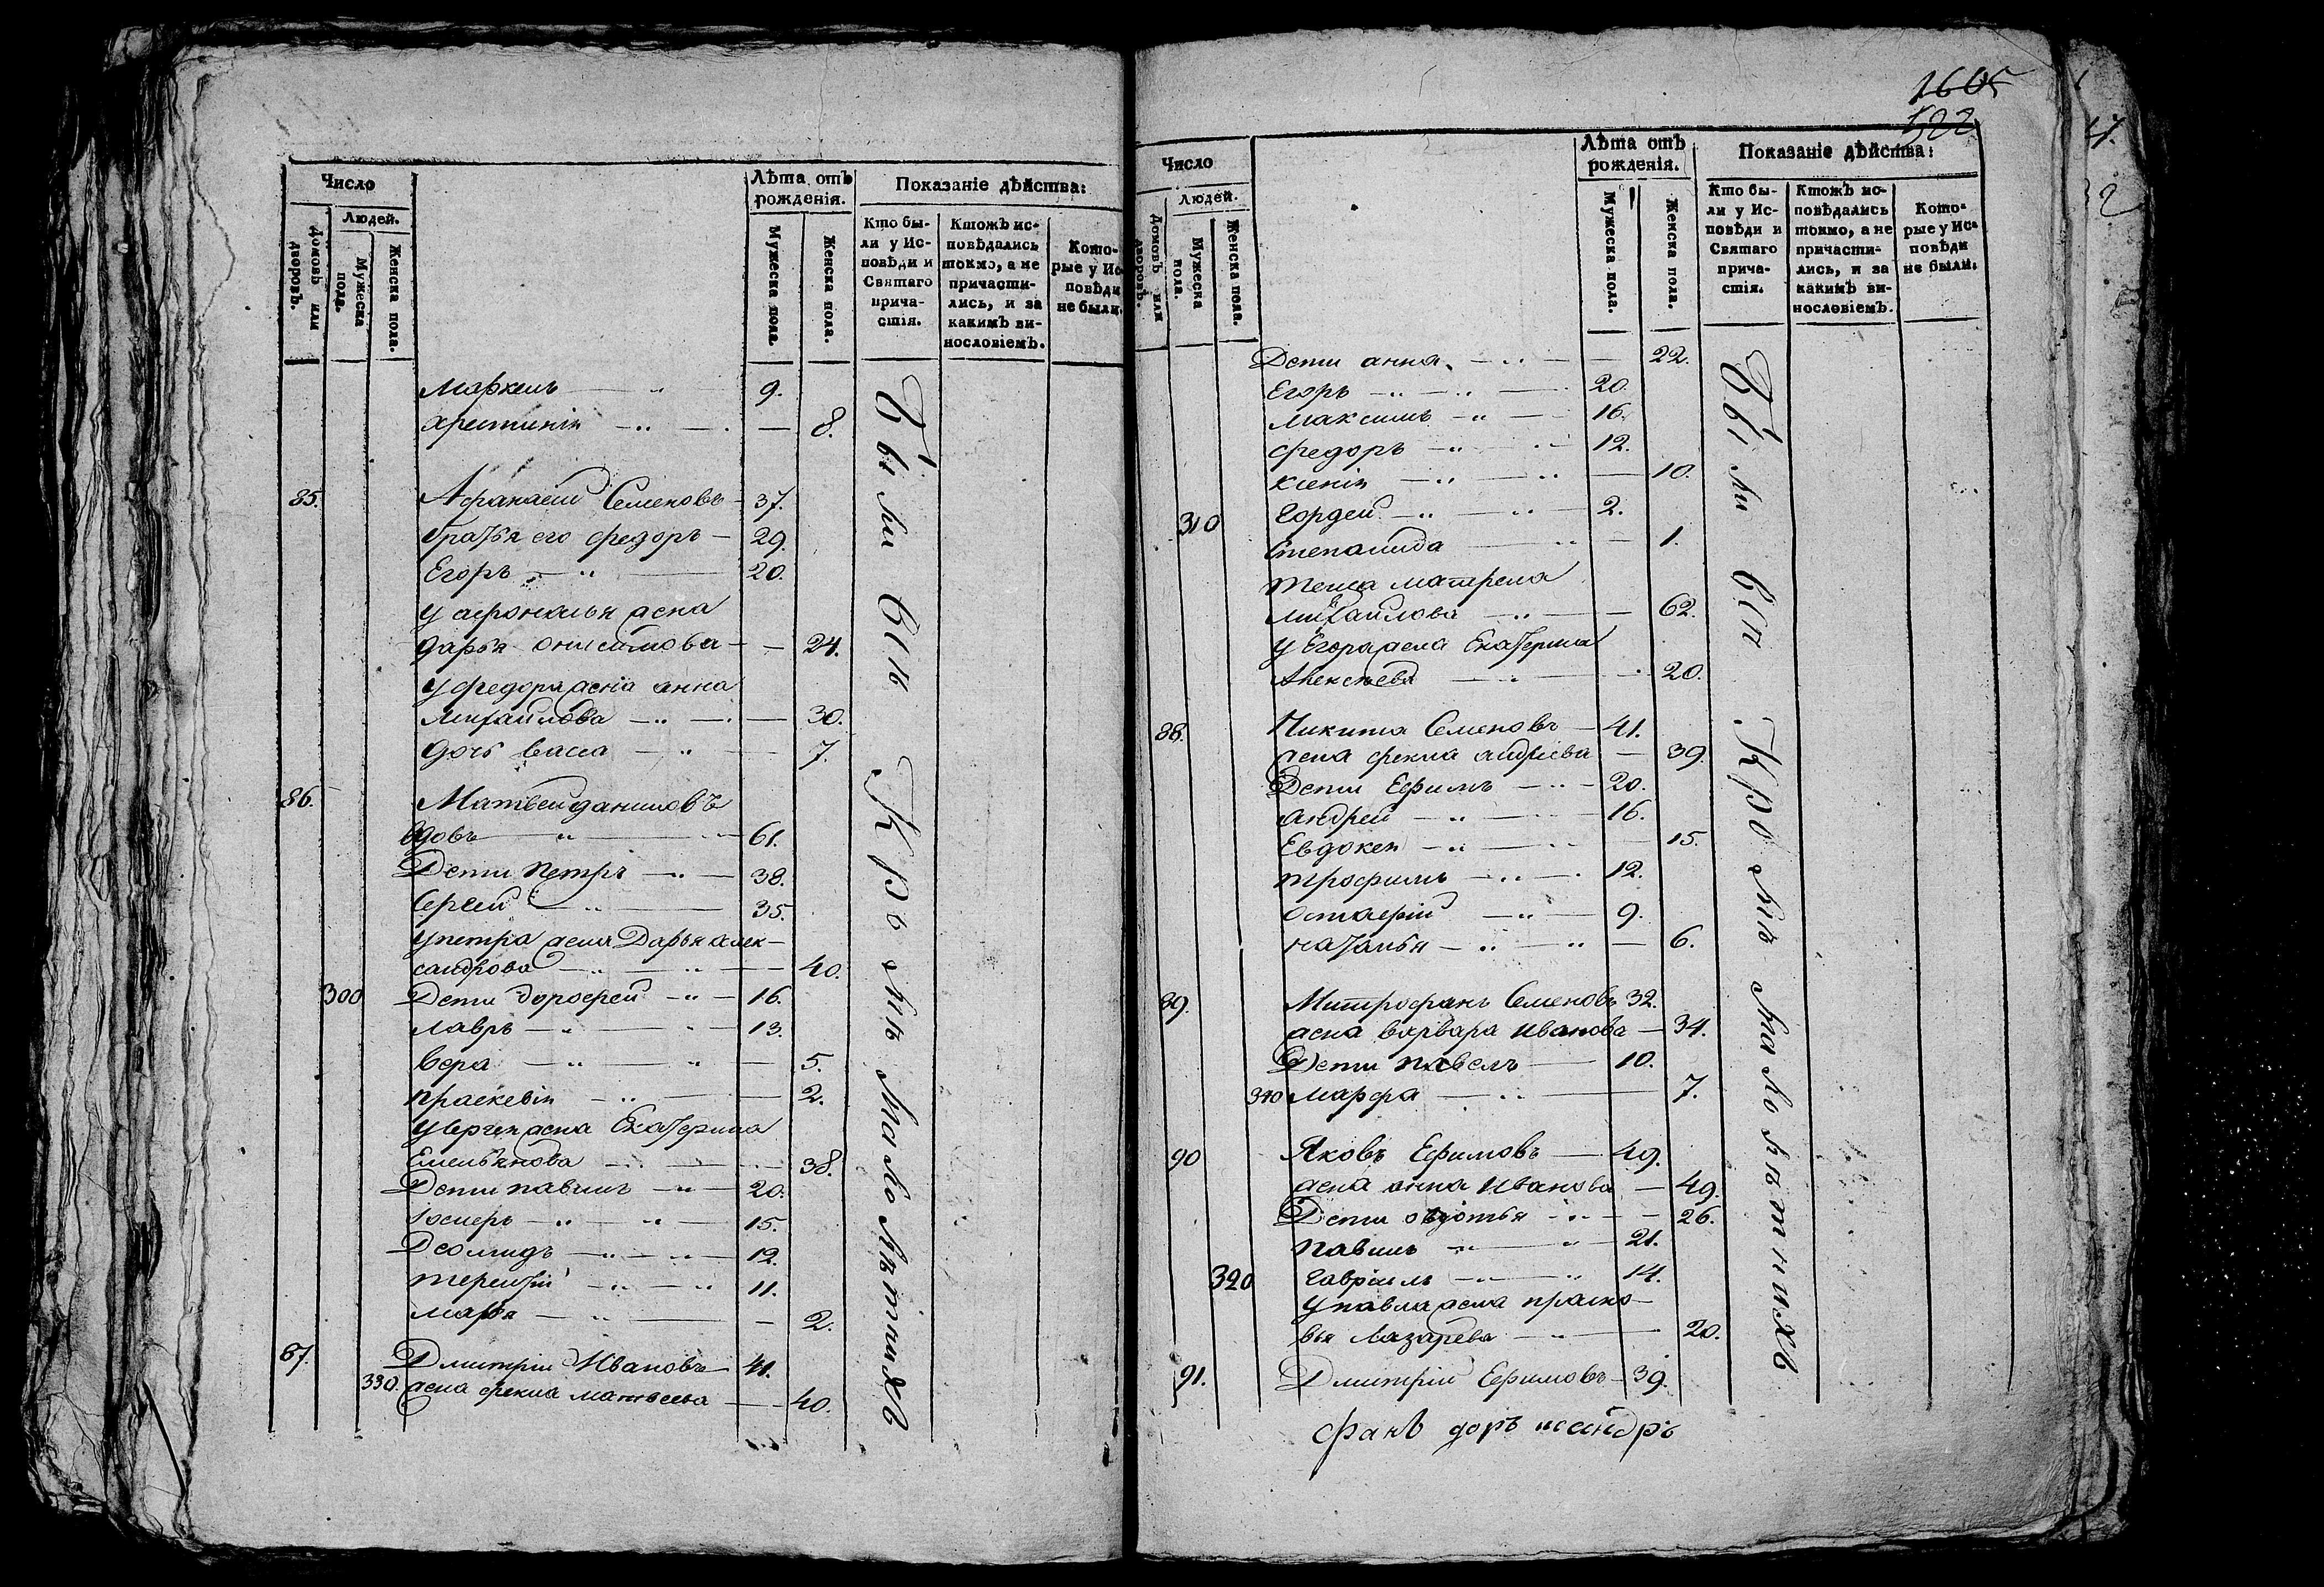 Число
Людей.
Домовъ или дворовъ.
Мужеска пола.
Женска пола.
Лѣта отъ рожденія.
Мужеска пола.
Женска пола.
Показаніе дѣйства:
Кто были у Исповѣди и Святаго причастія.
Ктожъ исповѣдались токмо, а не причастились, и за какимъ винословіемъ.
Которые у Исповѣди не были.
Маркелъ — „ 9.
Христинія — „ — — 8.
85. Афанасий Семеновъ — 37.
братья его федоръ — 29.
Егоръ — „ — 20.
у афонасья жена
дарья онисимова — — 24.
у федора жена анна
михайлова — „ — — 30.
дочь васса — „ — 7.
86. Матвей даниловъ
вдовъ — „ — 61.
Дети петръ — „ — 38.
Сергей — „ — 35.
у петра жена Дарья алек-
сандрова — „ — „ — 40.
300 Дети дорофей — „ — 16.
лавръ — „ — „ — 13.
вера — „ — „ — 5.
праскевія — „ — — 2.
у Сергея жена Екатерина
Емельянова — „ — — 38.
Дети павилъ — „ — 20.
— „ — „ — 15.
Деомидъ — „ — „ — 12.
терентій — „ — „ 11.
марья — „ — — 2.
87. Дмитрій Ивановъ — 41.
330. жена фекла матвеева — — 40.
Были вси Кромѣ малолѣтнихъ
1605
522
Число
Людей.
Домовъ или дворовъ.
Мужеска пола.
Женска пола.
Лѣта отъ рожденія.
Мужеска пола.
Женска пола.
Показаніе дѣйства:
Кто были у Исповѣди и Святаго причастія.
Ктожъ исповѣдались токмо, а не причастились, и за какимъ винословіемъ.
Которые у Исповѣди не были.
Дети анна — „ — — 22.
Егоръ — „ — „ — 20.
максимъ — „ — 16.
федоръ — „ — „ — 12.
ксенія — „ — „ — 10.
310 Гордей — „ — „ — 2.
степанида — „ — 1.
теща матрена
михайлова — „ — — 62.
у Егора жена Екатерина
Алексеева — „ — 20.
88. Никита Семеновъ — 41.
жена фекла андреева — 39.
Дети Ефимъ — „ — 20.
андрей — „ — „ — 16.
Евдокея — „ — „ — 15.
трофимъ — „ — 12.
остафій — „ — 9.
наталья — „ — „ — 6.
89. Митрофанъ Семеновъ 32.
жена варвара иванова — 34.
Дети павелъ — 10.
340 марфа — „ — 7.
90 Яковъ Ефимовъ — 49.
жена анна иванова — 49.
Дети овдотья — „ — — 26.
павилъ — „ — „ — 21.
320 гавріилъ — „ — „ 14.
у павла жена праско-
вья лазарева — „ — 20.
91. Дмитрій Ефимовъ — 39.
Были вси Кромѣ малолѣтнихъ